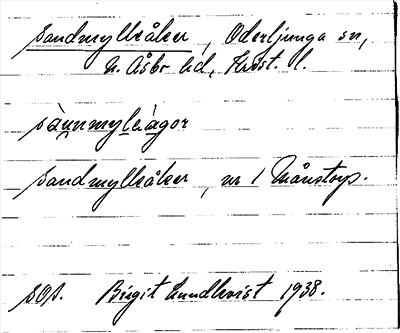 Sandmylleåker, Oderljunga sn,
N. Åsbo hd, Krist. l.
sànnmyleàgor
Sandmylleåker, nr 1 Månstorp.
SOA. Birgit Lundkvist 1938.